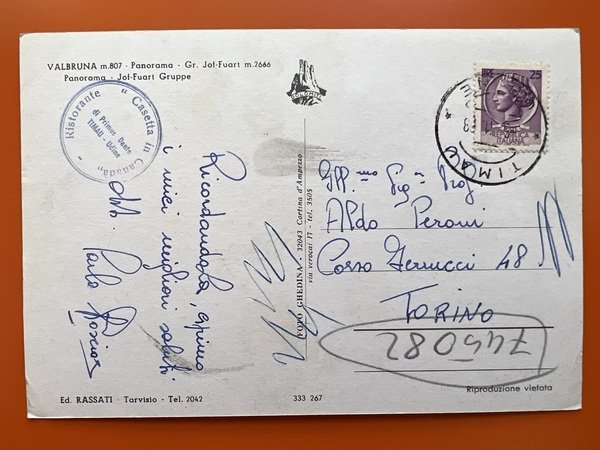 VALBRUNA m.807 - Panorama - Gr. Jof-Fuart m.2666
Panorama - Jof-Fuart Gruppe
Ristorante "Casetta in Canadà"
di Primus Dante
TIMAU - Udine
Ricordandola, espimo
i miei migliori saluti.
Paola
FOTO GHEDINA - 32043 Cortina d'Ampezzo
via verocai 17 - tel. 3505
25
ITALIANA
TIMAU
Ill.mo Sig.r Prof.
Aldo Peroni
Corso Ferrucci 48
TORINO
745082
Riproduzione vietata
Ed. RASSATI - Tarvisio - Tel. 2042
333 267